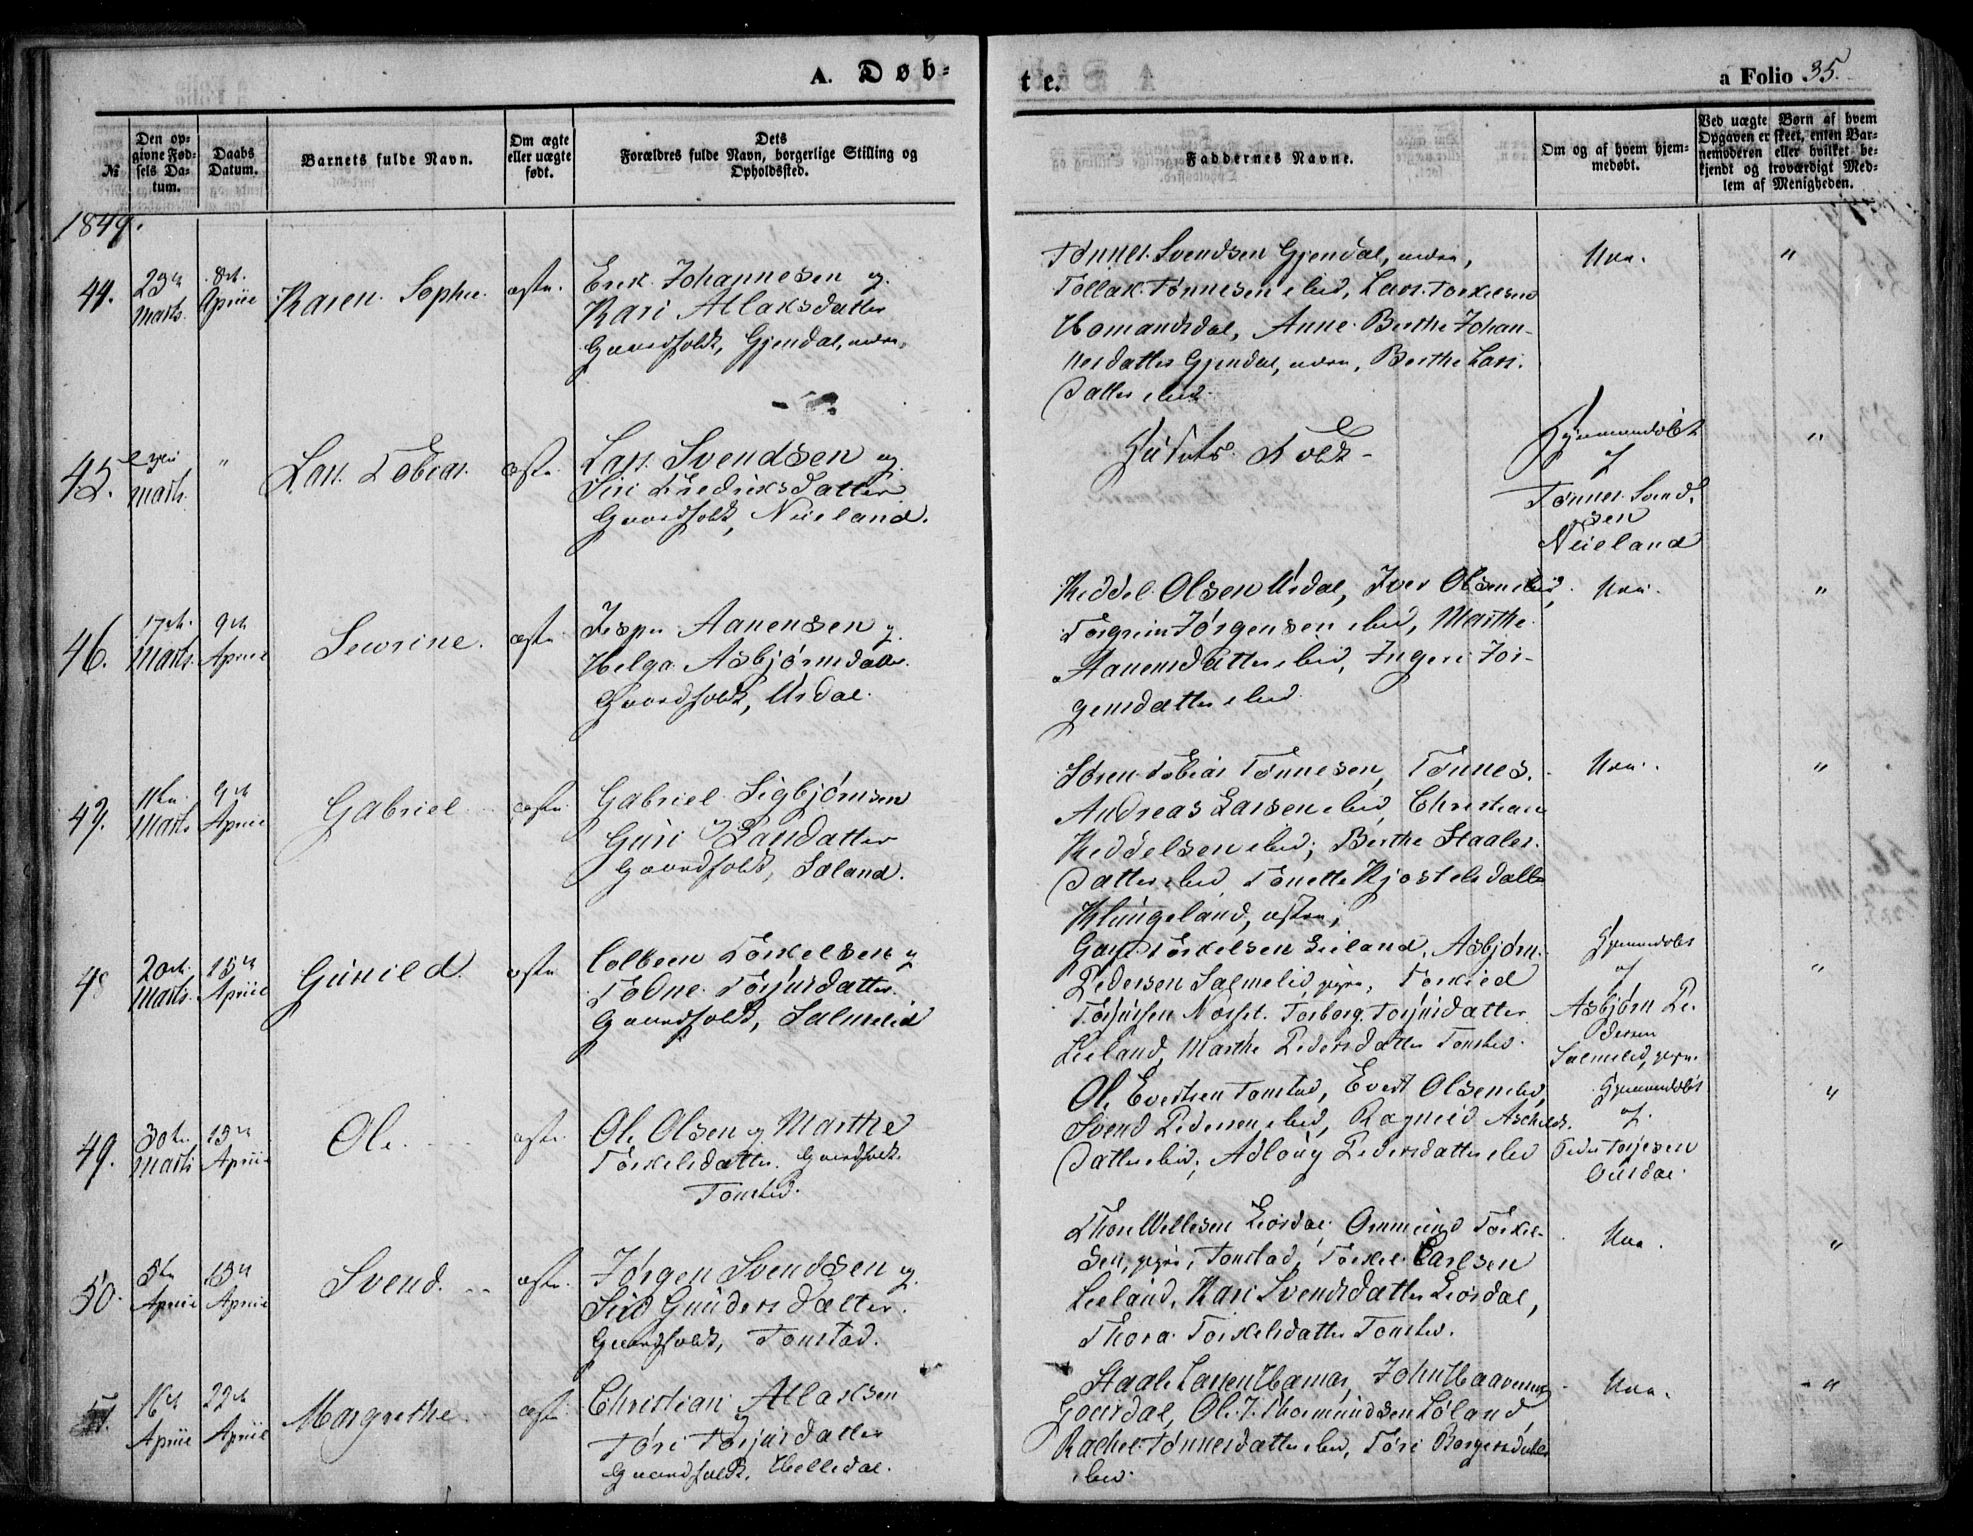 A. Døb-
te.
a Folio 35.
№
Den op-
givne Fød-
sels Da-
tum.
Daabs
Datum.
Barnets fulde Navn.
Om ægte
eller uægte
født.
Dets
Forældres fulde Navn, borgerlige Stilling og
Opholdssted.
Faddernes Navne.
Om og af hvem hjem-
medøbt.
Ved uægte Børn af hvem
Opgaven er skeet, enten Bar-
nemoderen eller hvilket be-
kjendt og troværdigt Med-
lem af Menigheden.
1849.
44.
Marts
8de
April
Karen Sophie
ægte
Erik Johannesen og
Kari Atlaksdatter
Gaardfolk, Gjendal, nedre
Tønnes Svendsen Gjendal, nedre,
Tollak Tønnesen ibid, Lars Torkelsen
Homandsdal, Anne Berthe Johan-
nesdatter Gjendal, nedre, Berthe Lars-
datter ibid
Nei.
"
45.
Marts
"
Lars Tobias
ægte
Lars Svendsen og
Siri Fredriksdatter
Gaardfolk, Neieland.
Hjemmedøbt
af
Tønnes Svend-
sen
Neieland
"
46.
17de
Marts
9de
April
Sevrine.
ægte
Jesper Aanensen og
Helga Asbjørnsdatter
Gaardfolk, Ursdal.
Keddel Olsen Ursdal, Iver Olsen ibid,
Torgrim Jørgensen ibid, Marthe
Aanensdatter ibid, Ingeri Jør-
gensdatter ibid
Nei.
"
47.
11te
Marts
9de
April
Gabriel
ægte
Gabriel Sigbjørnsen
Guri
Gaardfolk, Søland.
Søren Tobias Tønnesen, Tønnes
Andreas Larsen ibid, Christian
Keddelsen ibid, Berthe Staales-
datter ibid Tonette Kjostelsdatter
Klungeland, østre
Nei.
"
48
20de
Marts
15de
April
Gunild
ægte
Colbeen Torkelsen og
Todne Torjusdatter
Gaardfolk, Salmelid
Torkelsen Leiland, Asbjørn
Pedersen Salmelid, Torkild
Torjusen Torborg Torjusdatter
Leiland, Marthe Pedersdatter Tonsted.
Hjemmedøbt
af
Asbjørn Pe-
dersen
Salmelid,
"
49.
30te
Marts
15de
April
Ole.
ægte
Ole Olsen og Marthe
Torkelsdatter. Gaardfolk.
Tonsted.
Ole Evertsen Tonstad, Evert Olsen ibid,
Svend Pedersen ibid, Ragnild Aschilds-
datter ibid, Adloug Pedersdatter ibid
Hjemmedøbt
af
Peder Torjesen
Ousdal.
"
50.
5te
April
15de
April
Svend.
ægte
Jørgen Svendsen og
Siri Gundersdatter
Gaardfolk, Tonstad.
Thore Villesen Liordal Ommund Torkel-
sen, Tonstad, Torkel Carlsen
Leeland, Kari Svendsdatter Liordal,
Thora Torkelsdatter Tonsted.
Nei.
"
51.
16de
April
22de
April
Margrethe
ægte
Christian Atlaksen
Tøri Torjusdatter
Gaardfolk, Helledal.
Staale Larsen Hamar, John Haavensen
Gousdal, Ole J. Thormundsen Løland,
Rachel Tønnesdatter ibid, Tøri Borgersdatter
ibid.
Nei.
"